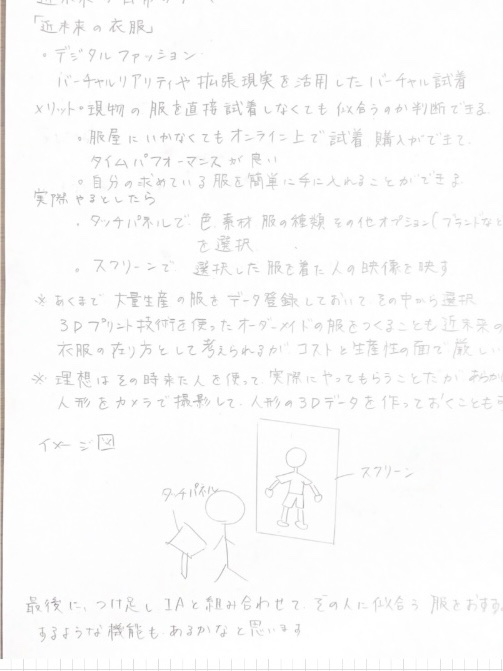 「近未来の衣服」
・デジタルファッション.
バーチャルリアリティや拡張現実を活用したバーチャル試着
メリット・現物の服を直接試着しなくても似合うのか判断できる
・服屋にいかなくてもオンライン上で試着 購入ができて、
タイムパフォーマンスが良い
・自分の求めている服を簡単に手に入れることができる
実際やるとしたら
・タッチパネルで 色 素材 服の種類 その他オプション(ブランドなど
を選択
・スクリーンで 選択した服を着た人の映像を映す
※あくまで 大量生産の服をデータ登録しておいて その中から選択
3Dプリント技術を使ったオーダーメイドの服をつくることも近未来の
衣服の在り方として考えられるが コストと生産性の面で厳しい
※理想はその時来た人を使って 実際にやってもらうことだが あらか
人形をカメラで撮影して 人形の3Dデータを作っておくことも
イメージ図
スクリーン
タッチパネル
最後に、つけ足し IAと組み合わせて その人に似合う 服をおすす
するような機能も あるかなと思います